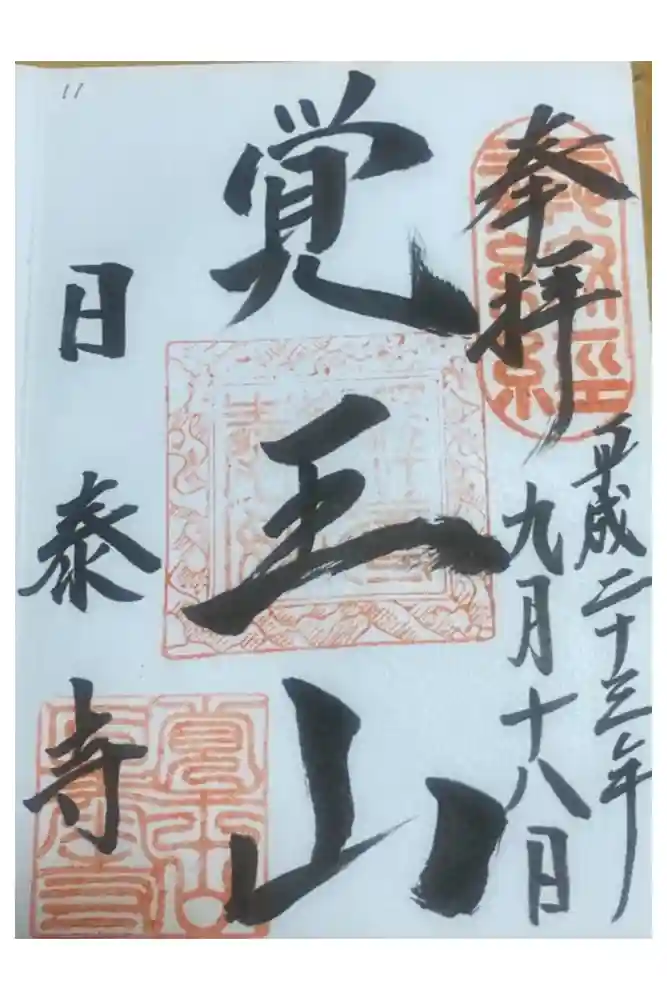 奉拝
平成二十三年
九月十八日
覚王山
日泰寺
17